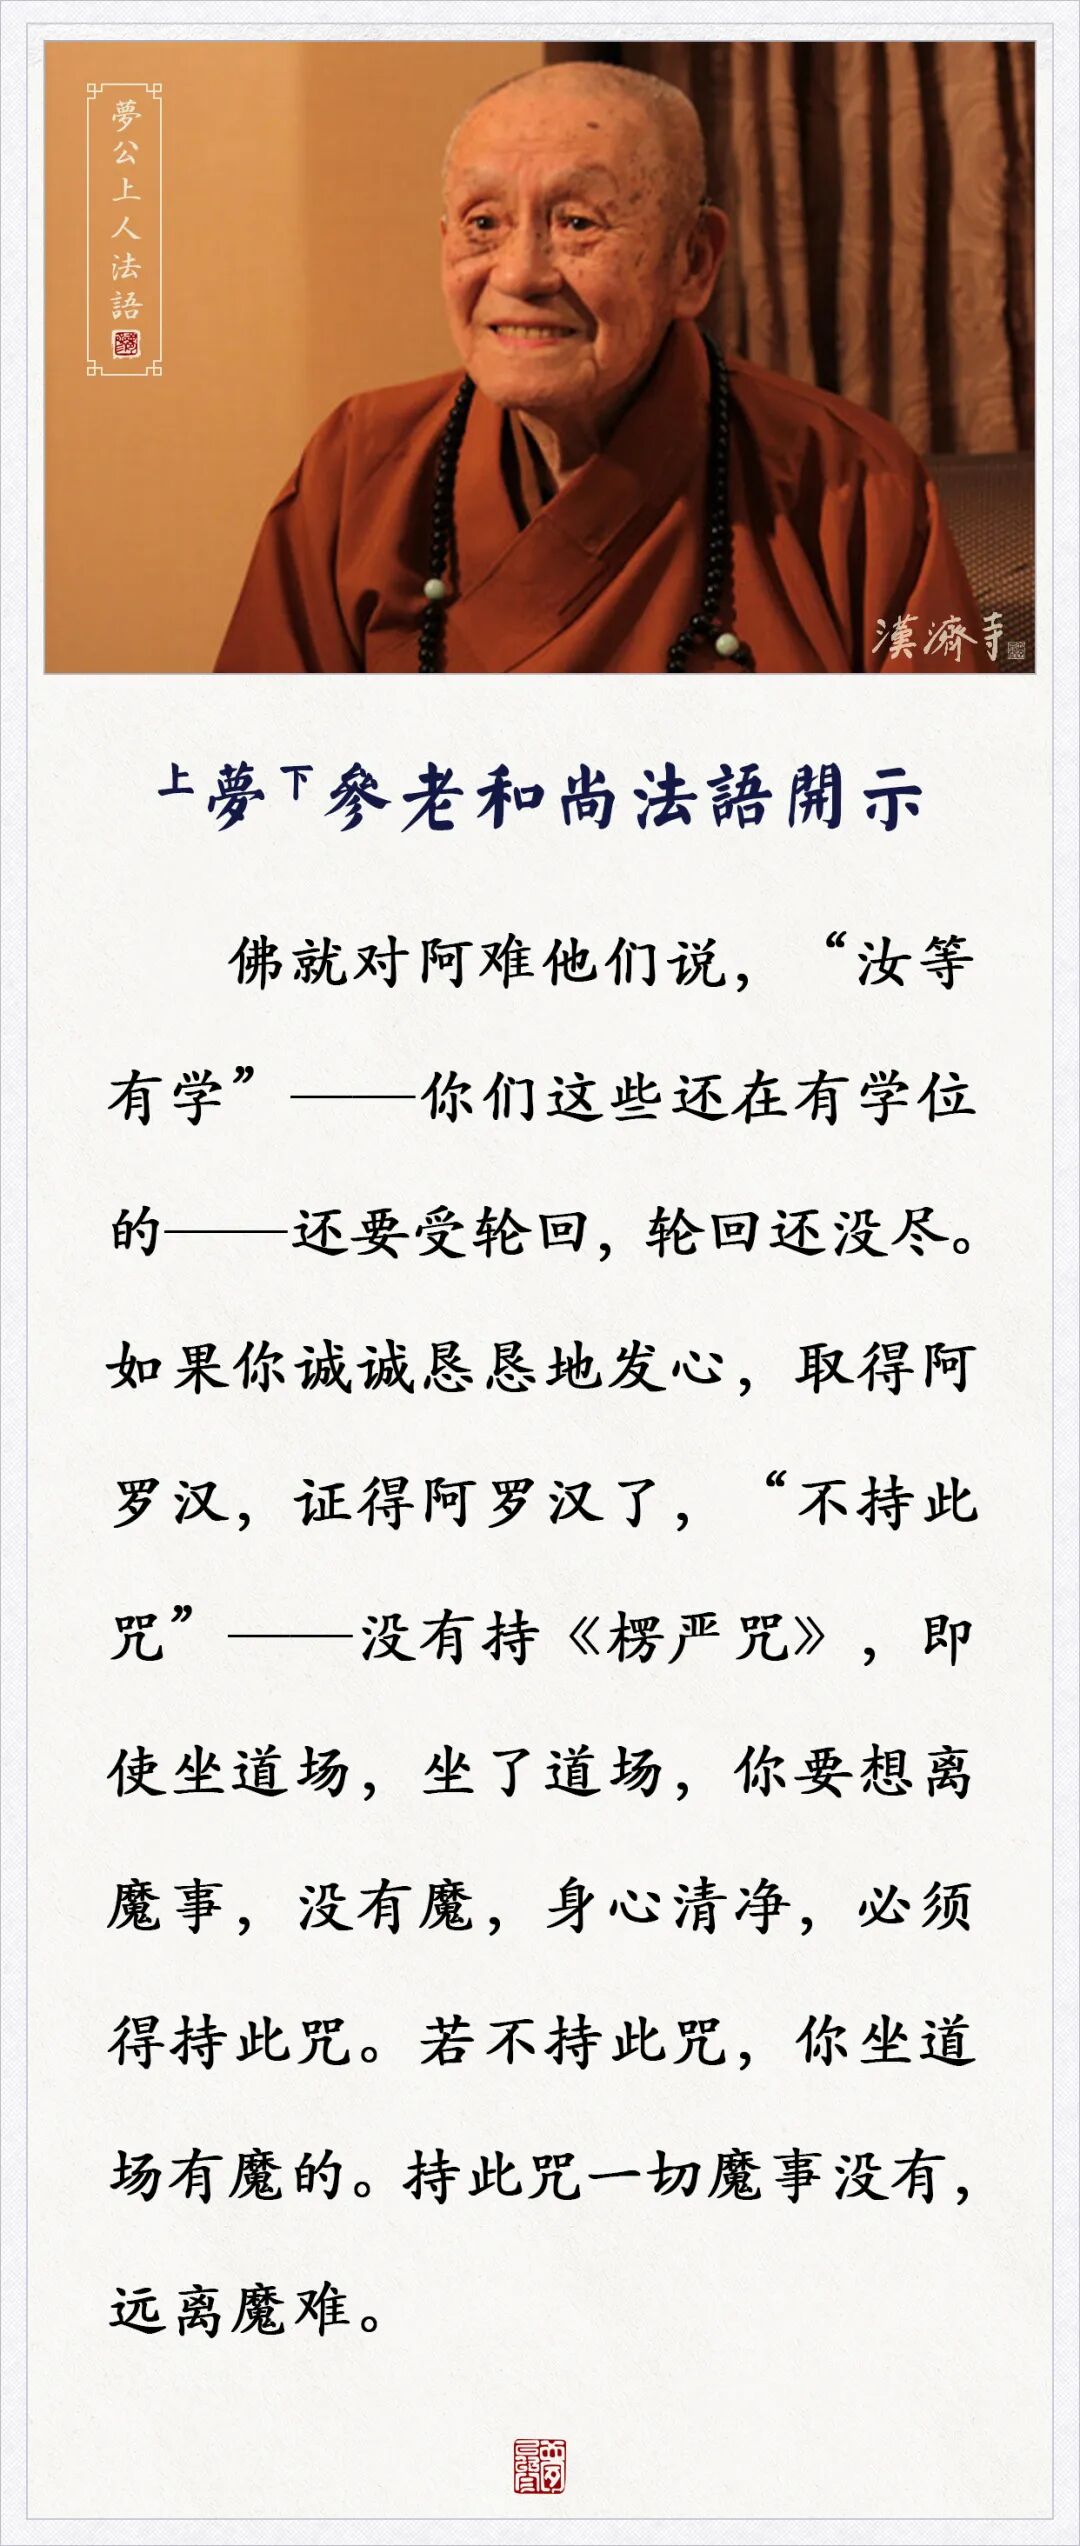 夢公上人法語
漢濟寺
上夢下參老和尚法語開示
佛就对阿难他们说，“汝等
有学”——你们这些还在有学位
的——还要受轮回，轮回还没尽。
如果你诚诚恳恳地发心，取得阿
罗汉，证得阿罗汉了，“不持此
咒”——没有持《楞严咒》，即
使坐道场，坐了道场，你要想离
魔事，没有魔，身心清净，必须
得持此咒。若不持此咒，你坐道
场有魔的。持此咒一切魔事没有，
远离魔难。